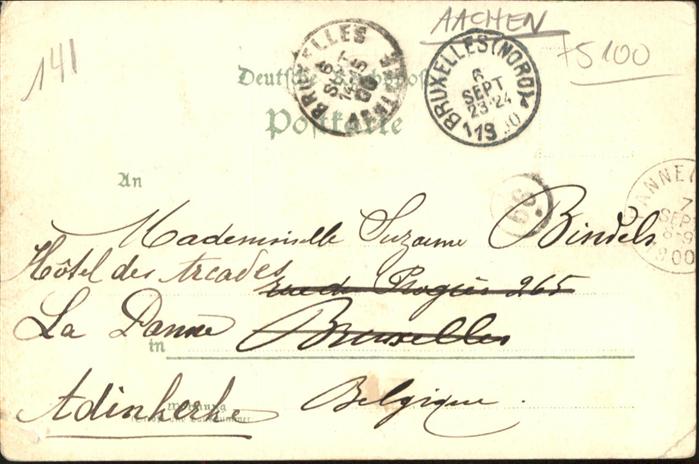 141
AACHEN
75100
BRUXELLES
BRUXELLES (NORD)
6
SEPT
23-24
1900
Deutsche Reichspost
Postkarte
ANNE
7
SEPT
8-9
1900
An
Mademoiselle Suzanne Bindels
Hôtel des Arcades rue du Progrès 265
La Panne Bruxelles
in
Adinkerke Belgique.
Wohnung